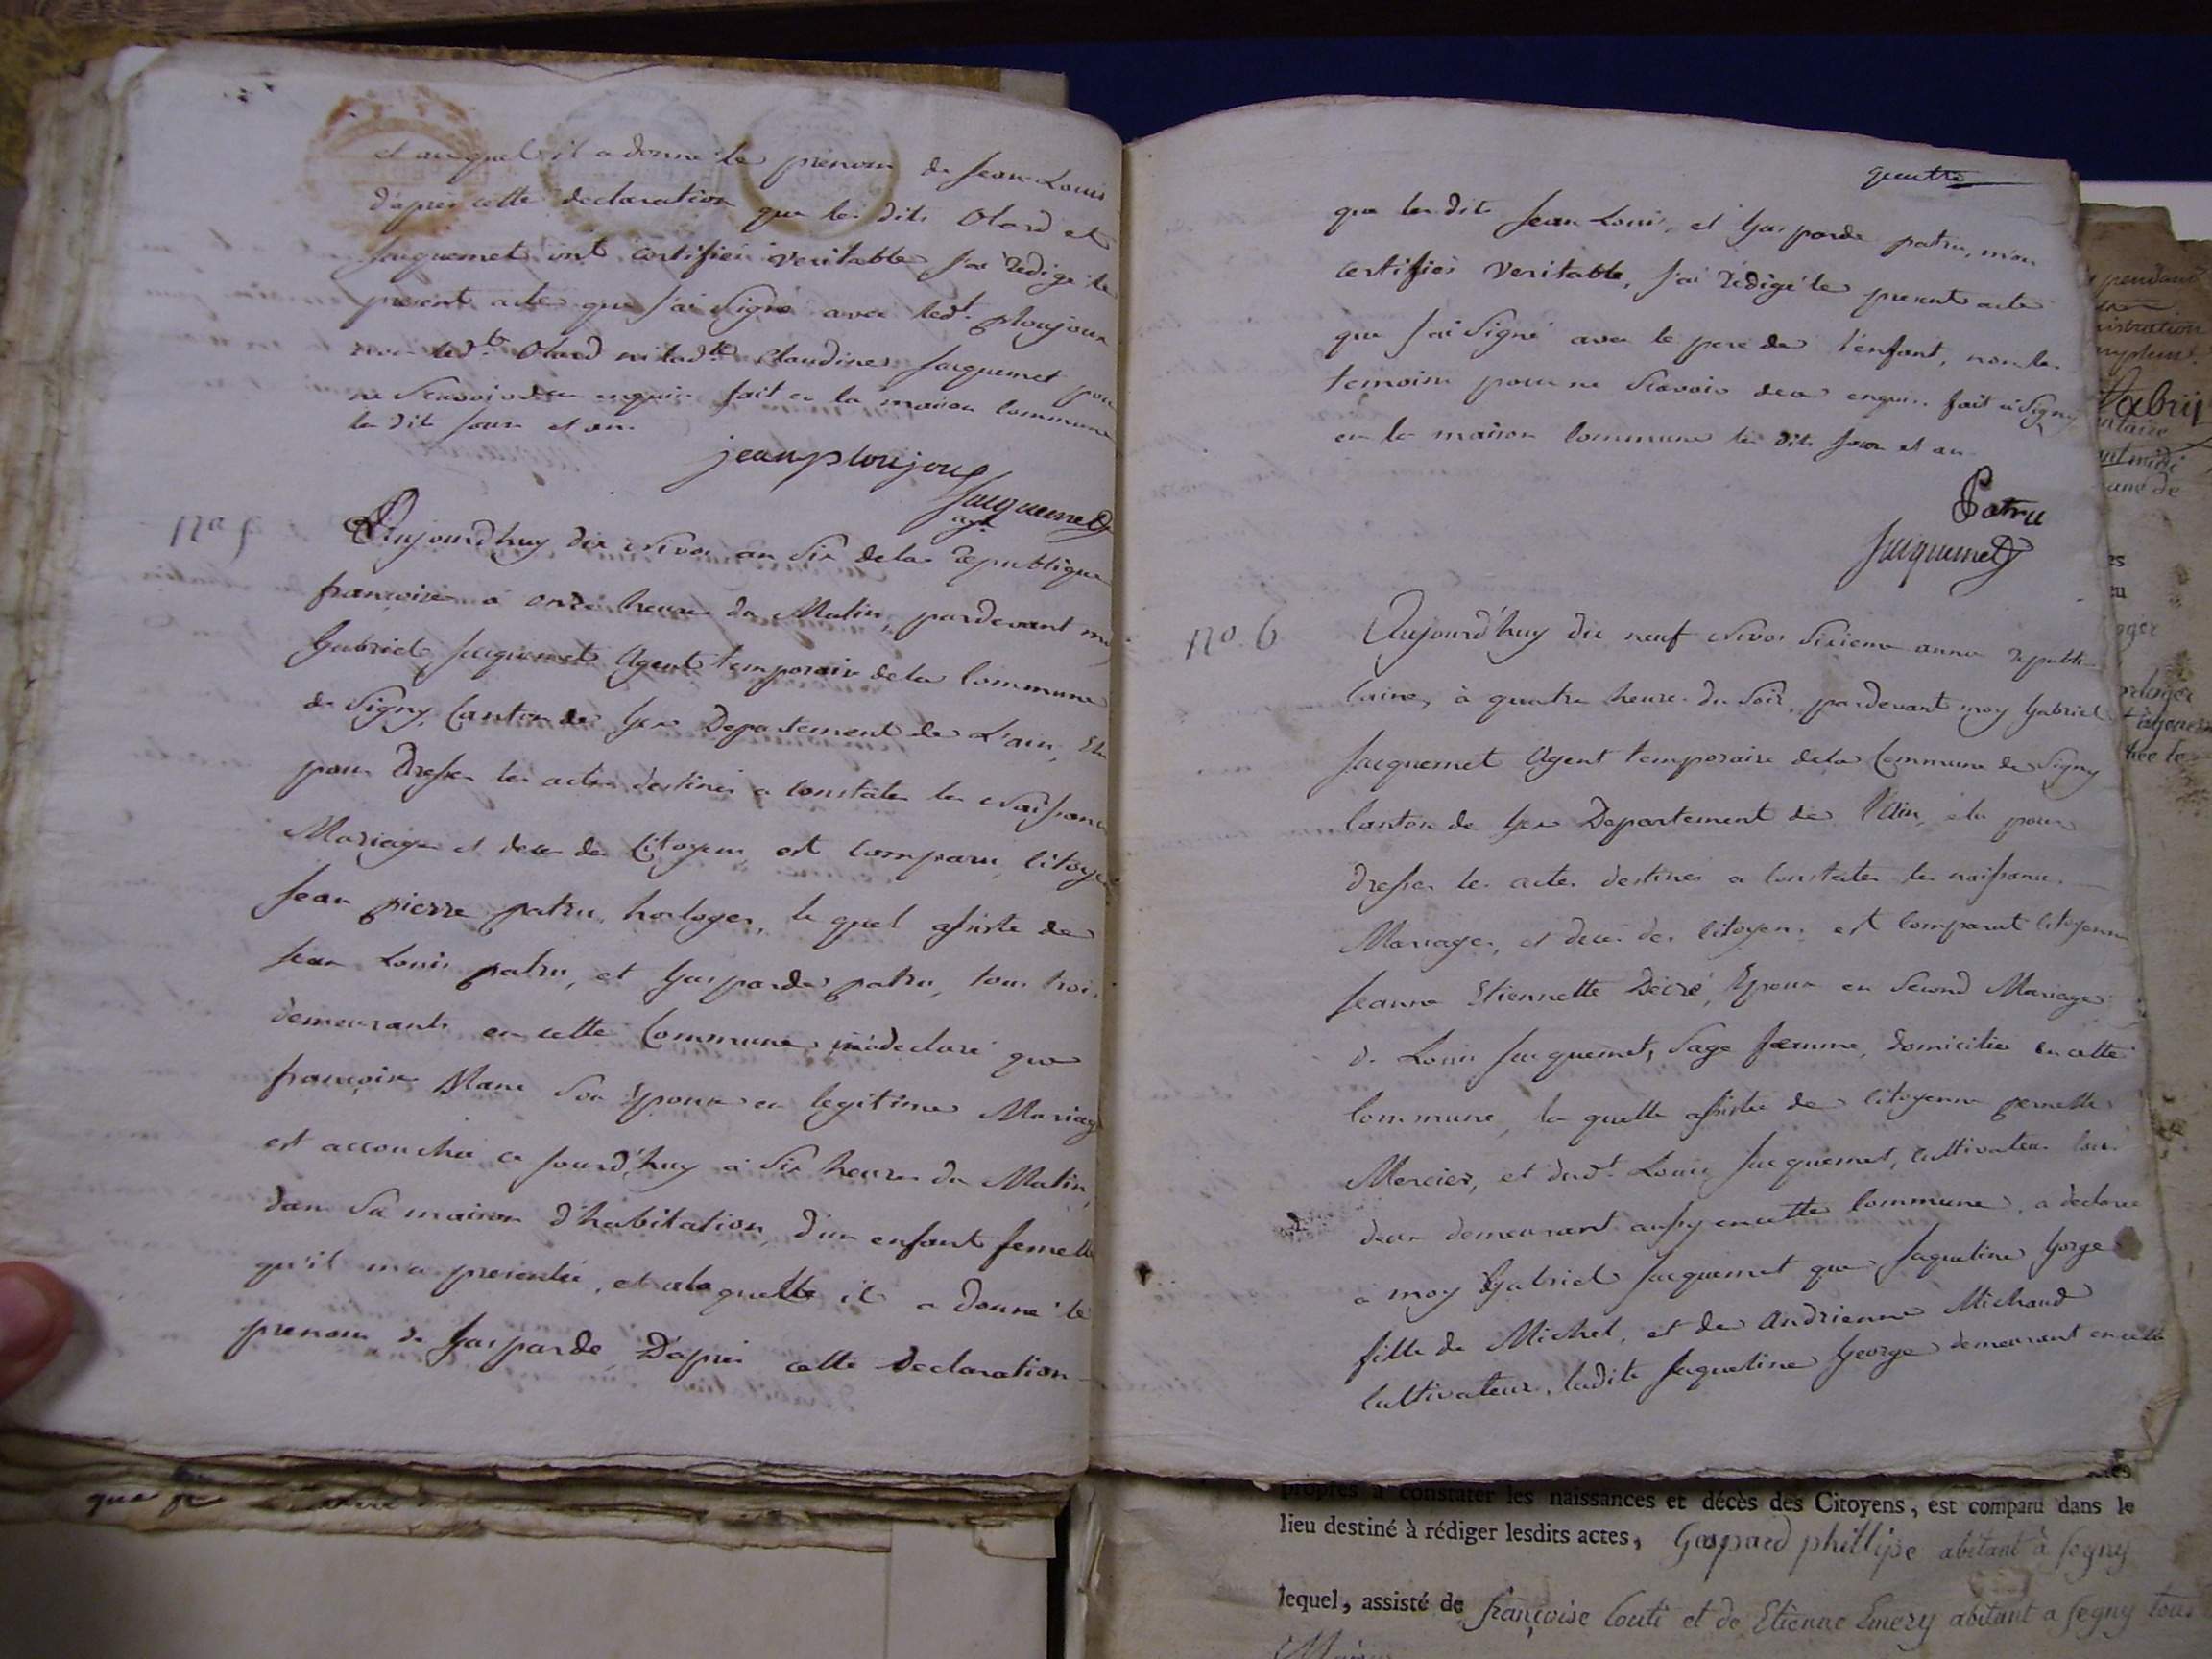 et auquel il a donné le prenom de Jean Louis
d'apres cette declaration que les dits Olard et
Jacquemet ont certifiés veritable j'ai rédigé le
présent acte que j'ai signé avec led.t ploujoux
non led.t Olard ni lad.te Claudine Jacquemet pour
ne scavoir de ce enquis fait en la maison Commune
les dits jour et an
jean ploujoux
Jacquemet
agt
No 5
Aujourdhuy dix nivos an six de la republique
francoise à onze heures du Matin, pardevant moy
Gabriel Jacquemet Agent temporaire de la Commune
de Signy, Canton de Gex Departement de L'ain, élu
pour Dresser les actes destinés a constater les Naissances
Mariages et deces des Citoyens, est comparu, citoyen
Jean pierre patru, horloger, le quel assisté de
Jean Louis patru, et Gasparde patru, tous trois
demeurants en cette Commune m'a declaré que
françoise son Epouse en legitime Mariage
est accouchée ce jourd'huy à six heures du Matin,
dans sa maison d'habitation, d'un enfant femelle
qu'il m'a presentée, et a laquelle il a donné le
prenom de Gasparde, D'apres cette Declaration
quattre
que les dits Jean Louis, et Gasparde patru, m'ont
certifiés veritable, j'ai rédigé le present acte
que j'ai signé avec le pere de l'enfant, non les
temoins pour ne scavoir de ce enquis. fait à Signy
en la maison Commune les dits jour et an
Patru
Jacquemet
No. 6
Aujourd'huy dix neuf nivos sixieme année republi-
caine, à quatre heures du soir, pardevant moy Gabriel
Jacquemet Agent temporaire de la Commune de Signy
Canton de Gex Departement de l'Ain, élu pour
dresser les actes destinés a constater les naissances
Mariages, et deces des Citoyens est comparut citoyenne
Jeanne Etiennette Decré, Epouse en second Mariage
de Louis Jacquemet, sage femme, domiciliée en cette
Commune, la quelle assistée de Citoyenne pernette
Mercier, et dud.t Louis Jacquemet, cultivateur tous
deux demeurant aussy en cette Commune, a declaré
à moy Gabriel Jacquemet que Jaqueline Gorge
fille de Michel, et de Andrienne Michaud
Cultivateur, ladite Jaqueline George demeurant en cette
pendant
istration
Fabry
ant midi
es
eu
propres à constater les naissances et décès des Citoyens, est comparu dans le
lieu destiné à rédiger lesdits actes, Gaspard phillipe abitant à segny
lequel, assisté de françoise Couti et de Etienne Emery abitant a segny tous